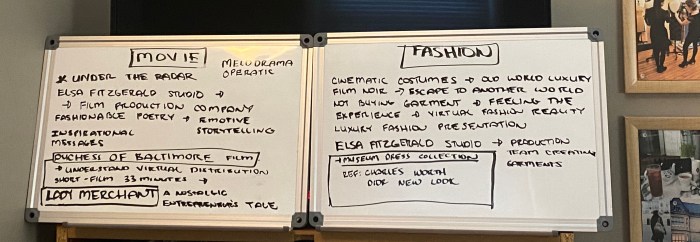 MOVIE
MELODRAMA
OPERATIC
* UNDER THE RADAR
ELSA FITZGERALD STUDIO →
→ FILM PRODUCTION COMPANY
FASHIONABLE POETRY → EMOTIVE
INSPIRATIONAL STORYTELLING
MESSAGES
DUCHESS OF BALTIMORE FILM
→ UNDERSTAND VIRTUAL DISTRIBUTION
SHORT-FILM 33 MINUTES →
LADY MERCHANT A NOSTALGIC
ENTREPRENEUR'S TALE
FASHION
CINEMATIC COSTUMES → OLD WORLD LUXURY
FILM NOIR → ESCAPE TO ANOTHER WORLD
NOT BUYING GARMENT → FEELING THE
EXPERIENCE → VIRTUAL FASHION REALITY
LUXURY FASHION PRESENTATION
ELSA FITZGERALD STUDIO → PRODUCTION
TEAM CREATING
GARMENTS
→ MUSEUM DRESS COLLECTION
REF: CHARLES WORTH
DIOR NEW LOOK